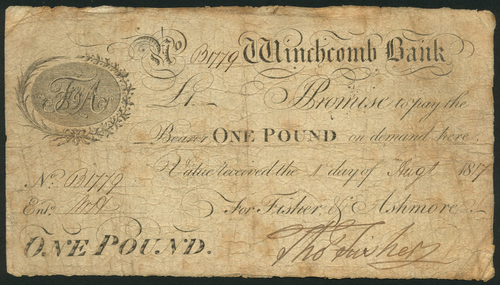 No B1779 Winchcomb Bank
F&A
£1.— I Promise to pay the
Bearer ONE POUND on demand here
Value received the 1 day of Augt 1817
No. B1779
Entd.
For Fisher, & Ashmore
ONE POUND.
Thos Fisher